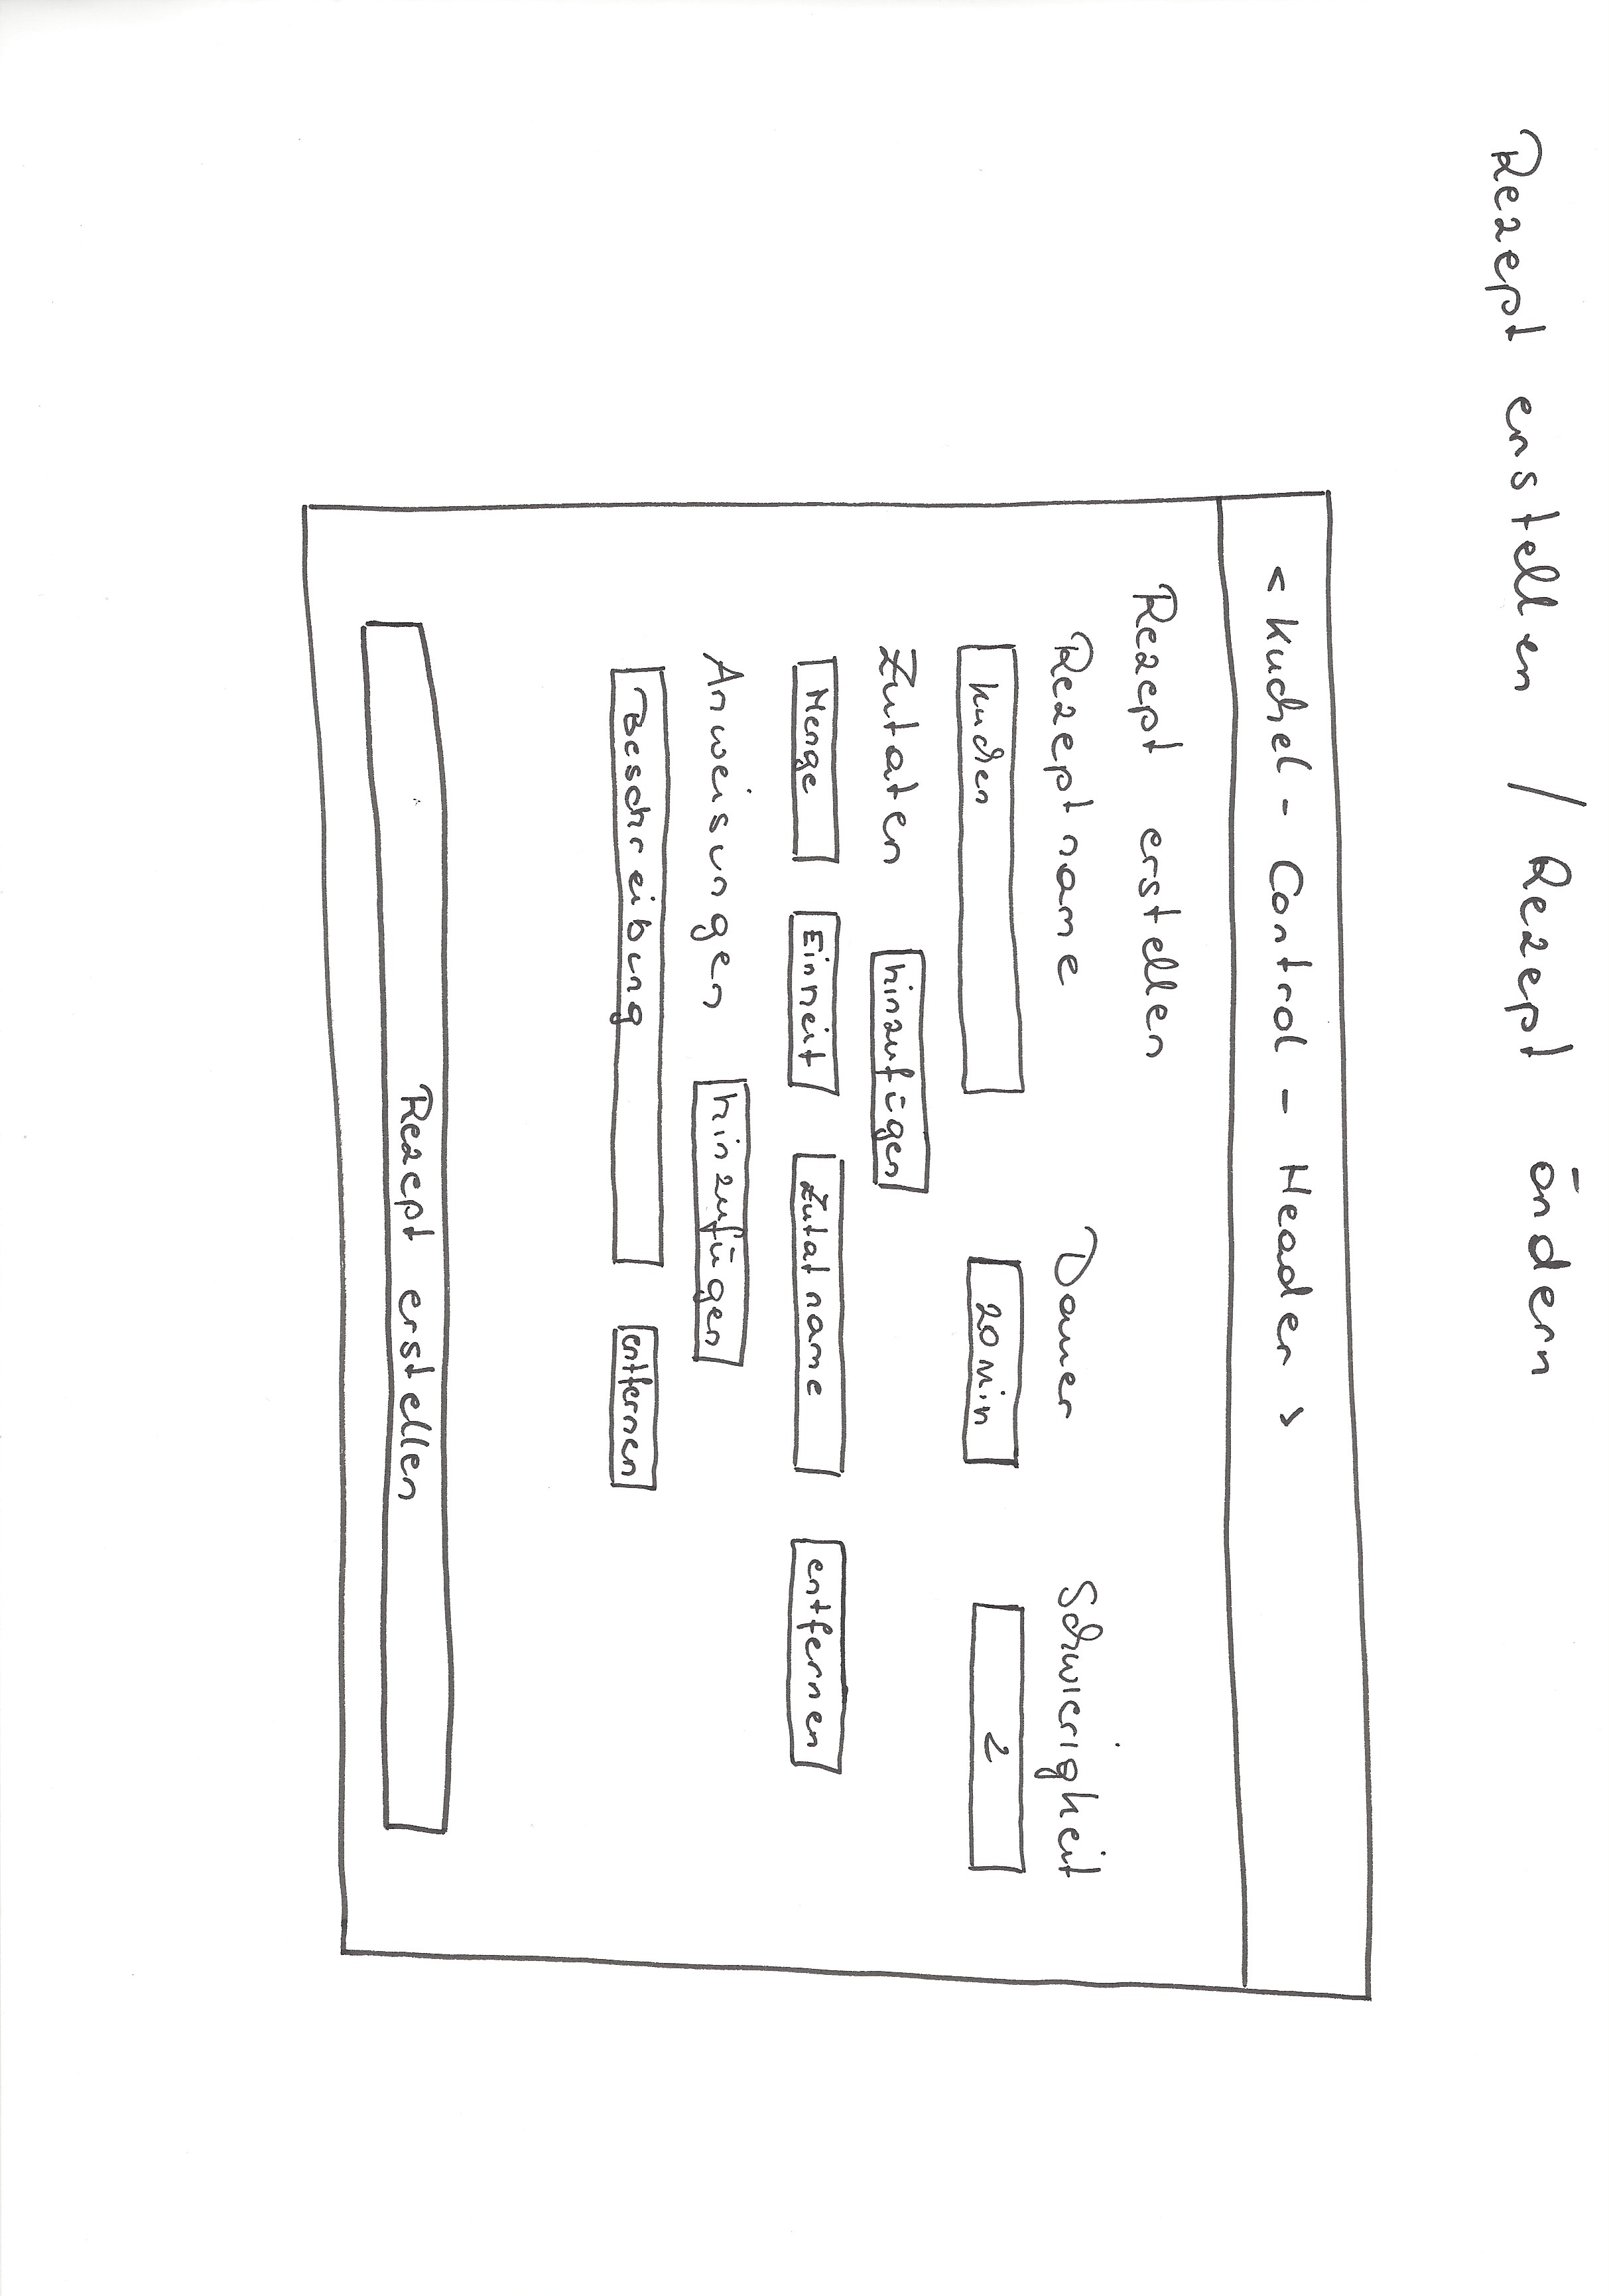 Rezept erstellen / Rezept ändern
< Kuchel - Control - Header >
Rezept erstellen
Rezeptname Dauer Schwierigkeit
Kuchen 20 Min 2
Zutaten hinzufügen
Menge Einheit Zutatname entfernen
Anweisungen hinzufügen
Beschreibung entfernen
Rezept erstellen